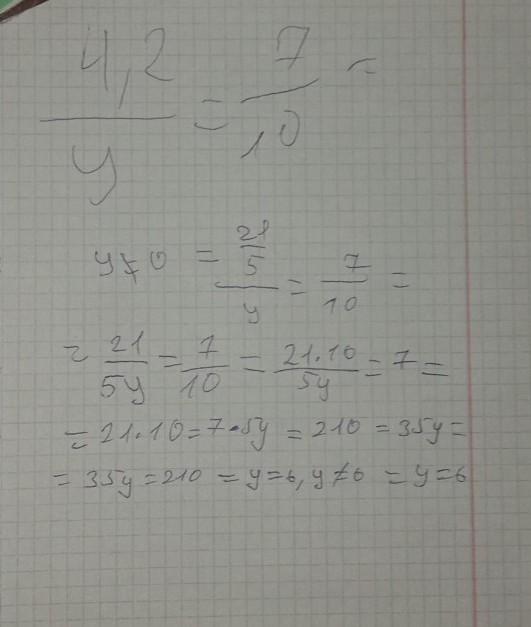 4,2/y = 7/10 =
y≠0 = (21/5)/y = 7/10 =
= 21/5y = 7/10 = 21·10/5y = 7 =
= 21·10 = 7·5y = 210 = 35y =
= 35y = 210 = y = 6, y ≠ 0 = y = 6